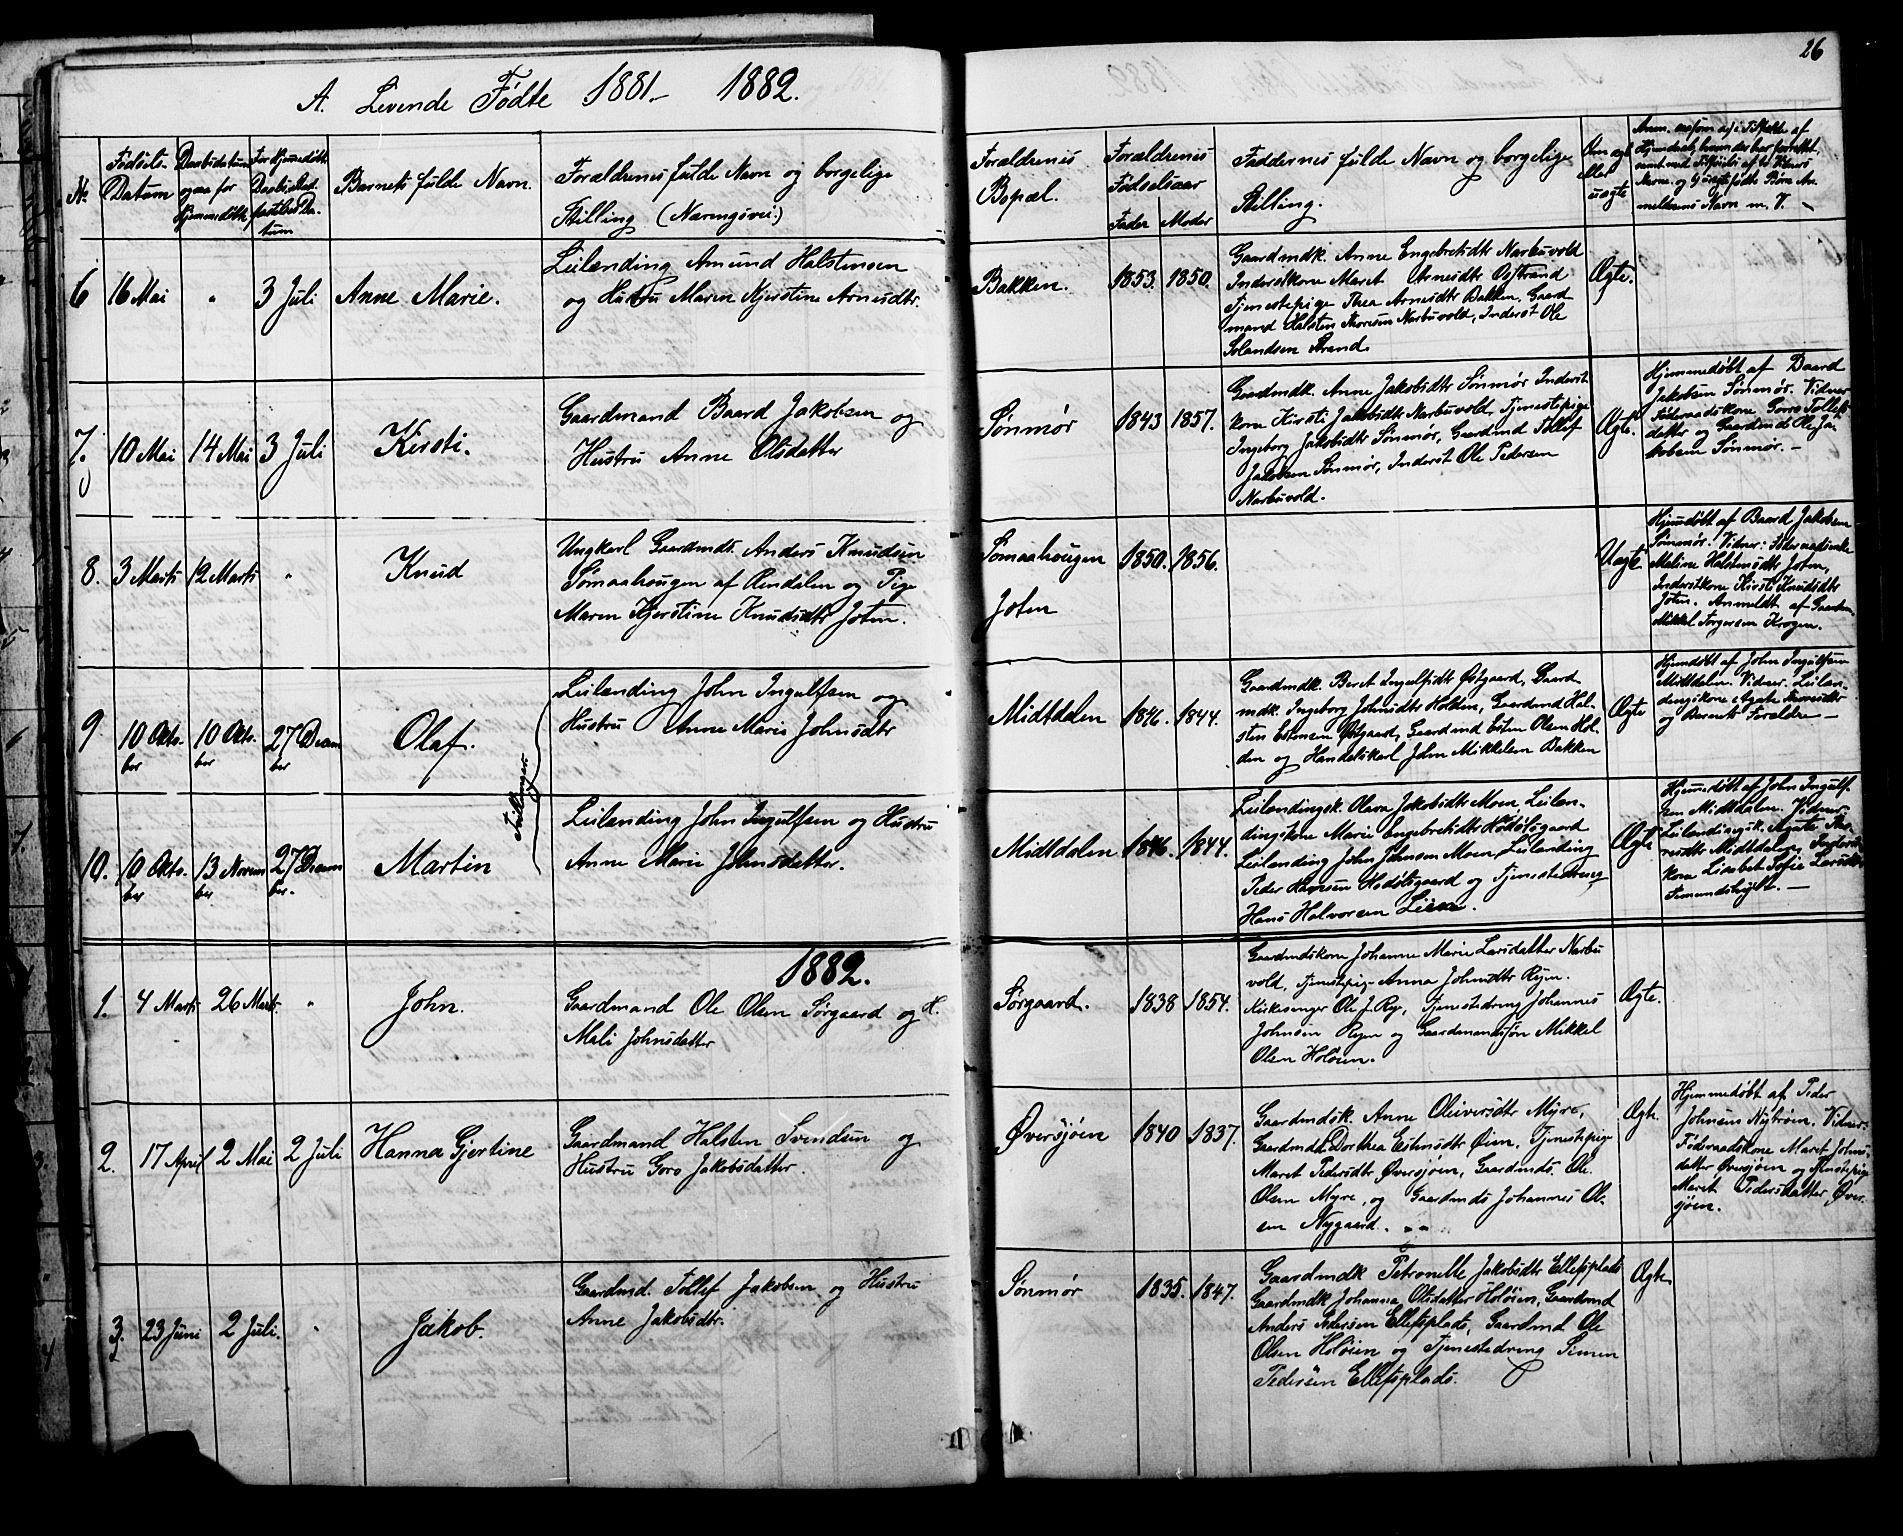 26
A. Levende Fødte 1881 - 1882.
No.
Fødsels-
Datum
Daabsdatum
ogsaa for
Hjemmedøbte
For Hjemmedøbte
Daabs
tum
Barnets fulde Navn.
Forældrenes fulde Navn og borgelige
Stilling (Næringsvei.)
Forældrenes
Bopæl.
Forældrenes
Fødselsaar
Fader Moder
Faddernes fulde Navn og borgelige
Stilling.
Om ægte
eller
uægte
6 16 Mai " 3 Juli Anne Marie.
Leilænding Amund Halstensen
og Hustru Maren Kjerstine Arnesdtr.
Bakken. 1853. 1850.
Gaardmdk. Anne Engebretsdtr Narbuvold
Inderstkone Maret Arnesdtr Østrand
Tjenestepige Thea Arnesdtr Bakken. Gaard
mand Halsten Thoresen Narbuvold, Inderst Ole
Strand.
Ægte.
7. 10 Mai 14 Mai 3 Juli Kirsti.
Gaardmand Baard Jakobsen og
Hustru Anne Olsdatter
Sønmør 1843 1857.
Gaardmdk. Anne Jakobsdtr Sønmør Inderst
kone Kirsti Jakobsdtr Narbuvold, Tjenestepige
Ingeborg Jakobsdtr Sønmør, Gaardmd Tollef
Jakobsen Sønmør, Inderst Ole Pedersen
Narbuvold.
Ægte.
Hjemmedøbt af Baard
Jakobsen Sønmør. Vidner
Føderaadskone Goro Tollefs
datter og Gaardmd Ole Ja
kobsen Sønmør. -
8. 3 Marts 12 Marts " Knud
Ungkarl Gaardmds. Anders Knudsen
Sømaahougen af Rendalen og Pige
Maren Kjerstine Knudsdtr Joten.
Sømaahougen
Joten
1850. 1856.
Uægte
Hjemdøbt af Baard Jakobsen
Sønmør. Vidner: Føderaadskone
Maline Halstensdtr Joten,
Inderstkone Kirsti Knudsdtr
Joten. Anmeldt af Gaardm.
Mikkel Torgersen Krogen.
9 10 Okto-
ber
10 Okto.
ber
27 Decem
ber
Olaf.
Leilænding John Ingulfsen og
Hustru Anne Marie Johnsdtr
Tvillinger
Midtdalen 1846. 1844.
Gaardmdk. Beret Ingulfsdtr Østgaard, Gaard
mdk. Ingeborg Johnsdtr Holden, Gaardmd Hal-
sten Estensen Østgaard, Gaardmd Esten Olsen Hol-
den og Handelskarl John Mikkelsen Bakken
Ægte
Hjemdøbt af John Ingulfsen
Midtdalen. Vidner: Leilæn
dingskone Agate
og Barnets Forældre -
10. 10 Okto.
ber
13 Novem
ber
27 Decem
ber.
Martin
Leilænding John Ingulfsen og Hustru
Anne Marie Johnsdatter.
Midtdalen 1846. 1844.
Leilændingsk. Olava Jakobsdtr Moen, Leilæn-
dingskone Marie Engebretsdtr Hodølsgaard
Leilænding John Johnsen Moen, Leilænding
Peder Hansen Hodølsgaard og Tjenestedreng
Hans Halvorsen Lien.
Ægte
Hjemmedøbt af John Ingulf-
sen Midtdalen. Vidner
Leilændingsk. Agate Tho-
resdtr Midtdalen, Inderst
kone Lisabet Sofie Larsdtr
Femundshøgt. -
1882.
1. 4 Marts 26 Marts. " John.
Gaardmand Ole Olsen Sørgaard og H.
Mali Johnsdatter
Sørgaard. 1838 1854.
Gaardmdskone Johanne Marie Larsdatter Narbu
vold, Tjenestepige Anna Johnsdtr Ryen.
Kirkesanger Ole J. Ry, Tjenestedreng Johannes
Johnsen Ryen og Gaardmandssøn Mikkel
Olsen Holøien.
Ægte.
2. 17 April 2 Mai 2 Juli Hanna Gjertine
Gaardmand Halsten Svendsen og
Hustru Goro Jakobsdatter.
Øversjøen 1840 1837.
Gaardmdsk. Anne Oliversdtr Myre,
Gaardmdd. Dorthea Estensdtr Øien, Tjenestepige
Maret Pedersdtr Øversjøen, Gaardmds. Ole
Olsen Myre, og Gaardmds Johannes Ol-
sen Nygaard.
Ægte
Hjemmedøbt af Peder
Johnsen Nystrøm. Vidner:
Føderaadskone Maret Johns-
datter Øversjøen og Tjenestepige
Maret Pedersdatter Øver-
sjøen.
3. 23 Juni 2 Juli. " Jakob.
Gaardmd. Tollef Jakobsen og Hustru
Anne Jakobsdtr.
Sønmør 1835. 1847.
Gaardmdk Petronelle Jakobsdtr Ellefsplads
Gaardmdk Johanna Olsdatter Holøien, Gaardmd
Anders Pedersen Ellefsplads, Gaardmd Ole
Olsen Holøien og Tjenestedreng Simen
Pedersen Ellefsplads.
Ægte